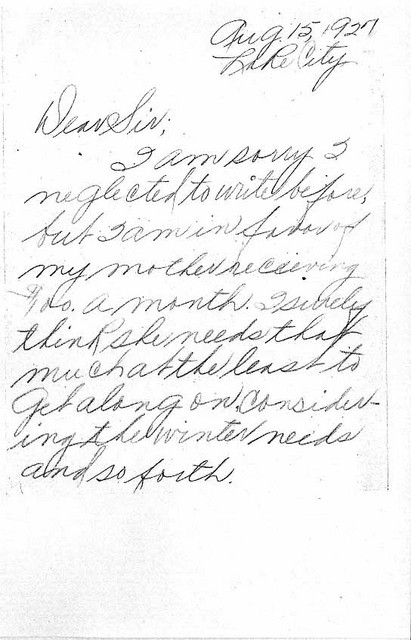 Aug. 15, 1927
Lake City
Dear Sir;
I am sorry I
neglected to write before,
but I am in favor of
my mother recieving
$100. a month. I surely
think she needs that
much at the least to
get along on, consider-
ing the winter needs
and so forth.